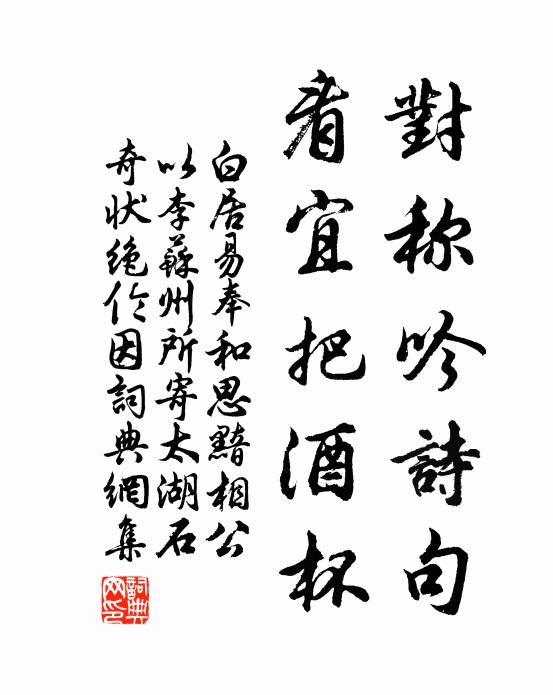 對称吟詩句
看宜把酒杯
白居易奉和思黯相公
以李蘇州所寄太湖石
奇状绝伦因詞典網集
詞典